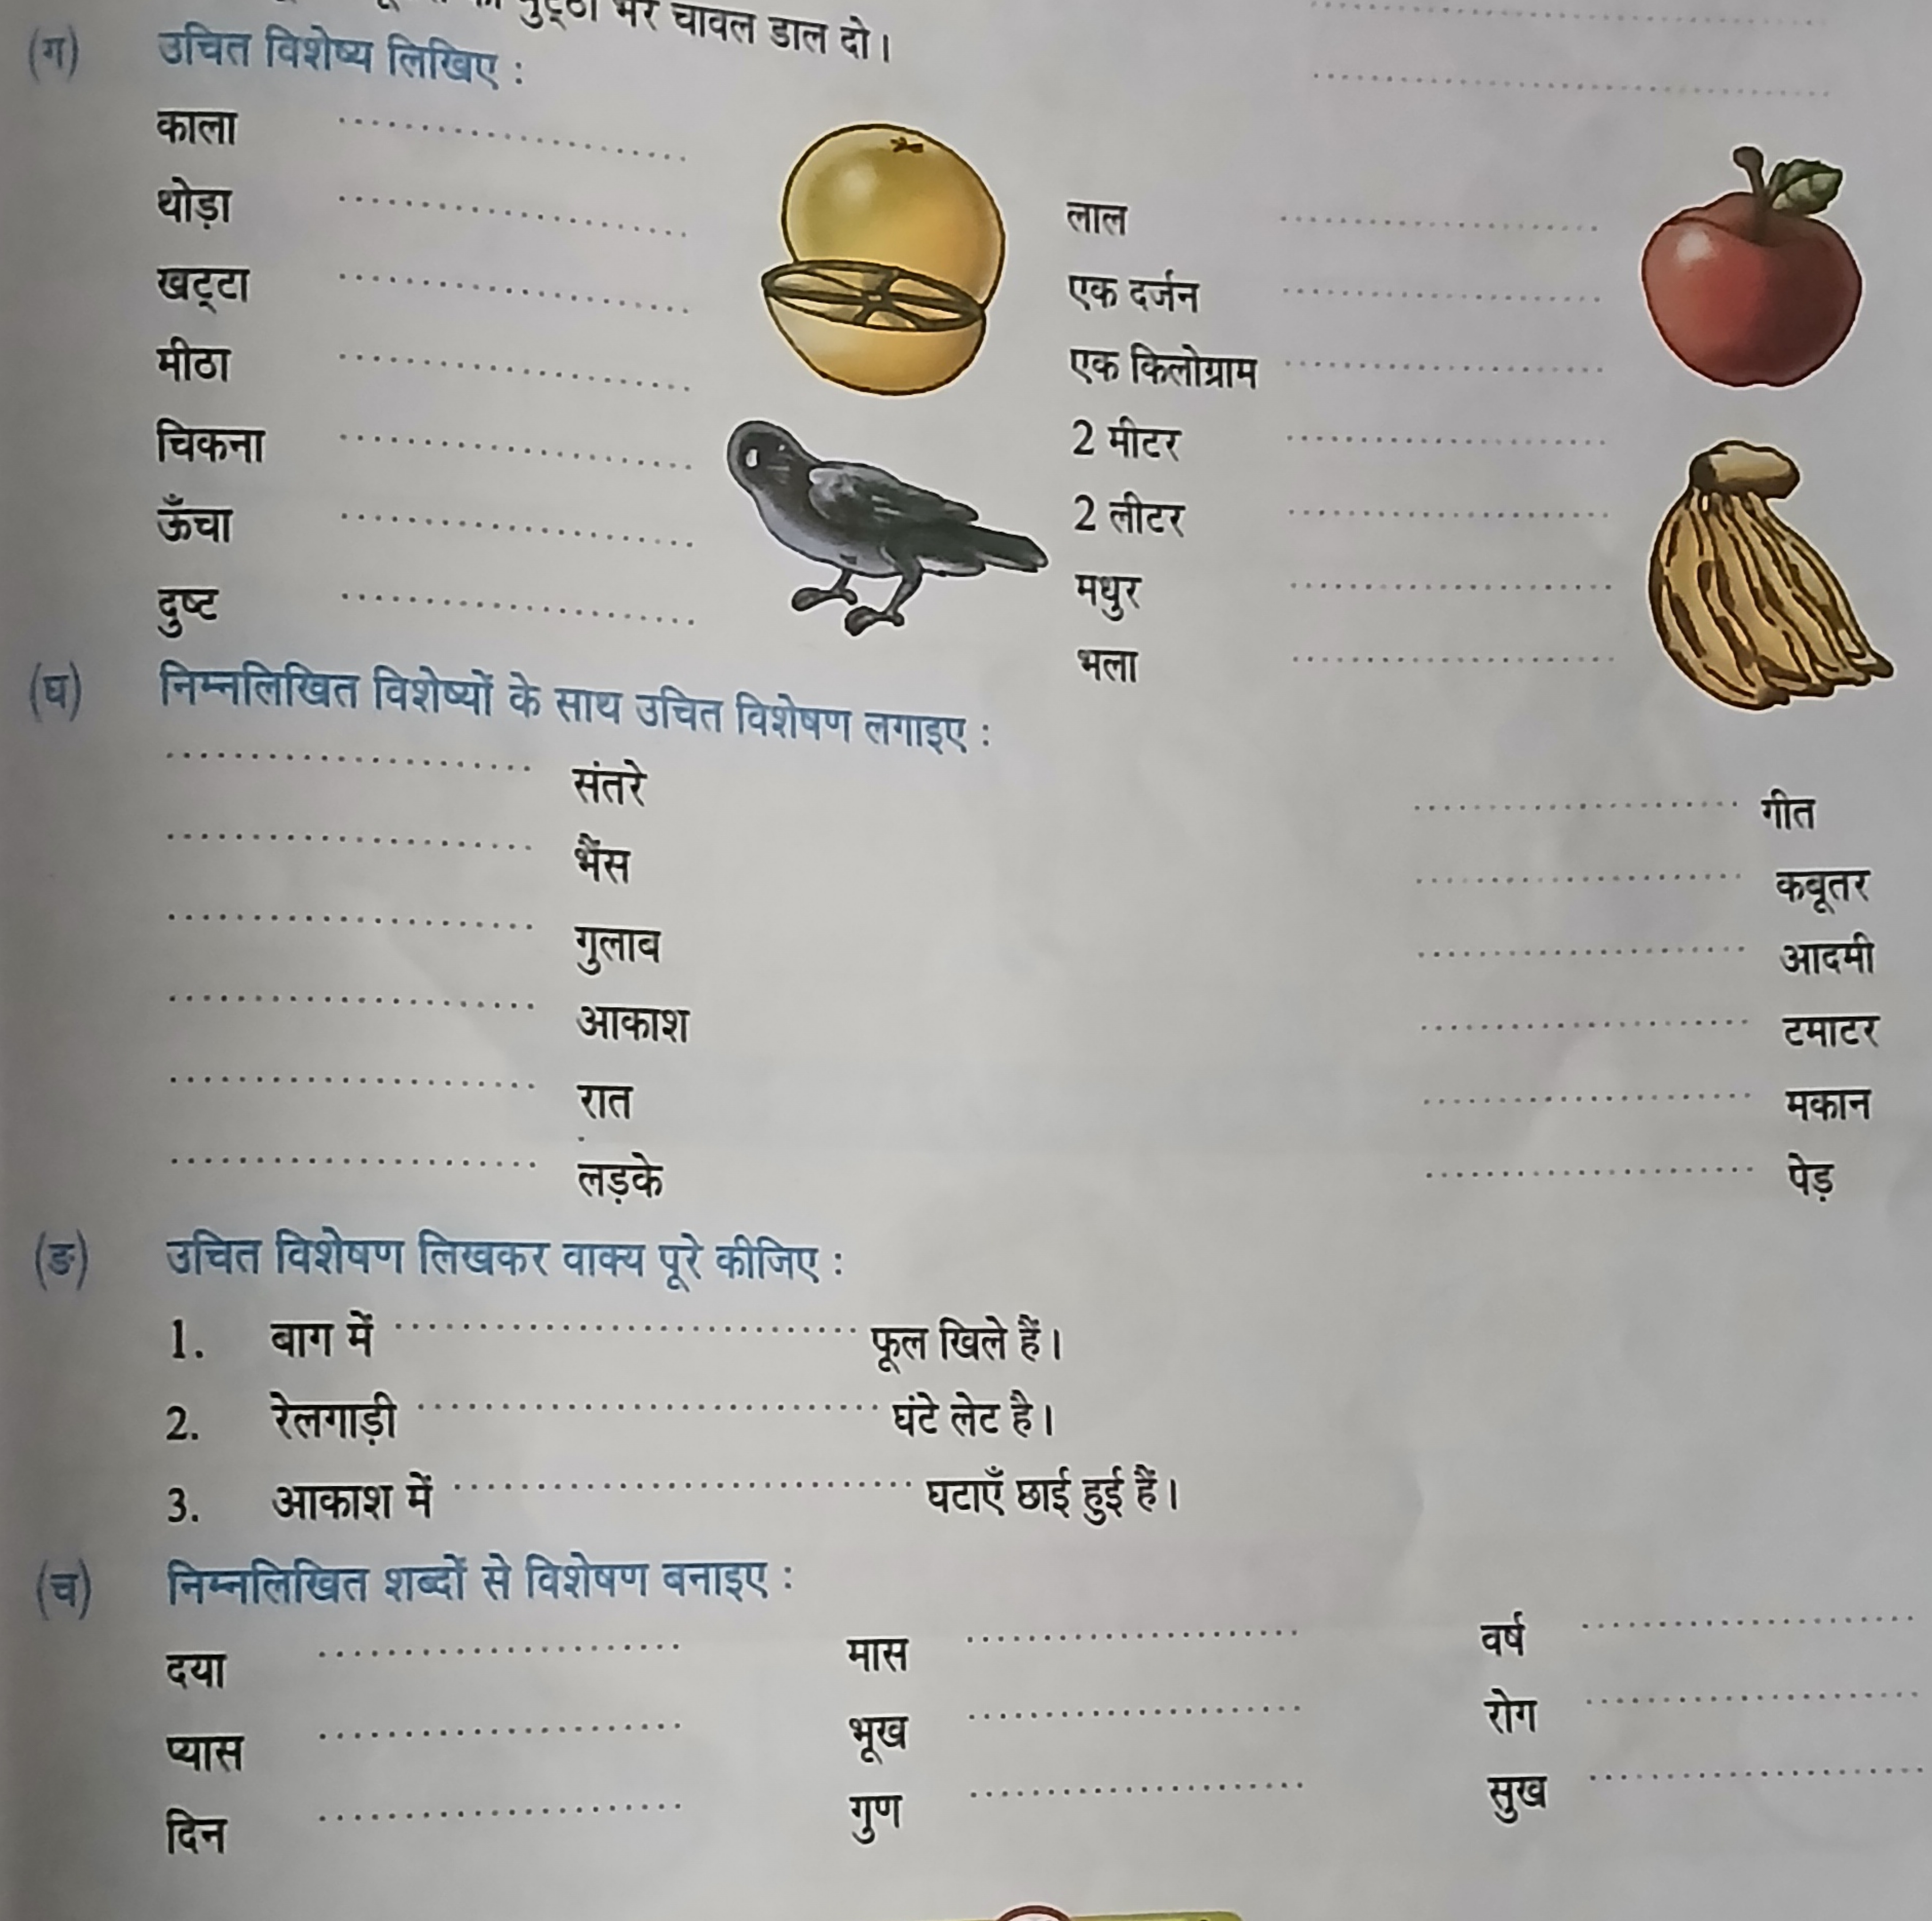 मुट्ठी भर चावल डाल दो।
(ग) उचित विशेष्य लिखिए :
काला
थोड़ा
खट्टा
मीठा
चिकना
ऊँचा
दुष्ट
लाल
एक दर्जन
एक किलोग्राम
2 मीटर
2 लीटर
मधुर
भला
(घ) निम्नलिखित विशेष्यों के साथ उचित विशेषण लगाइए :
संतरे
भैंस
गुलाब
आकाश
रात
लड़के
गीत
कबूतर
आदमी
टमाटर
मकान
पेड़
(ङ) उचित विशेषण लिखकर वाक्य पूरे कीजिए :
1. बाग में .............................. फूल खिले हैं।
2. रेलगाड़ी .............................. घंटे लेट है।
3. आकाश में .............................. घटाएँ छाई हुई हैं।
(च) निम्नलिखित शब्दों से विशेषण बनाइए :
दया .............................. मास .............................. वर्ष ..............................
प्यास .............................. भूख .............................. रोग ..............................
दिन .............................. गुण .............................. सुख ..............................